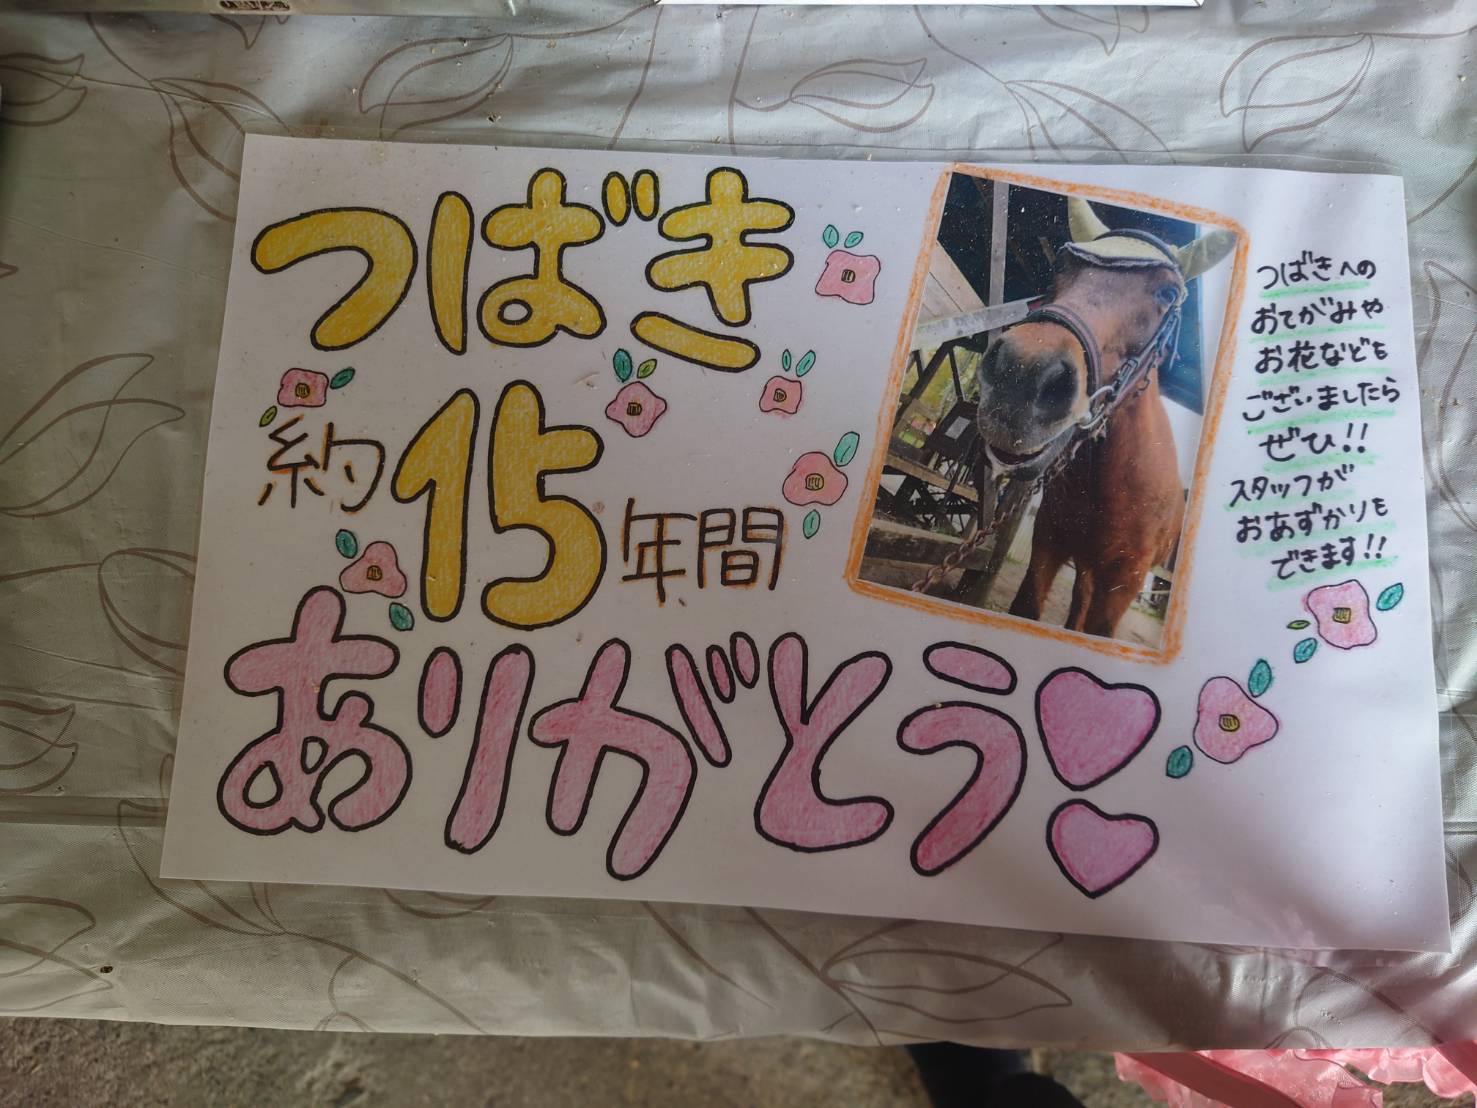 つばき
約15年間
ありがとう!
つばきへの
おてがみや
お花なども
ございましたら
ぜひ!!
スタッフが
おあずかりも
できます!!